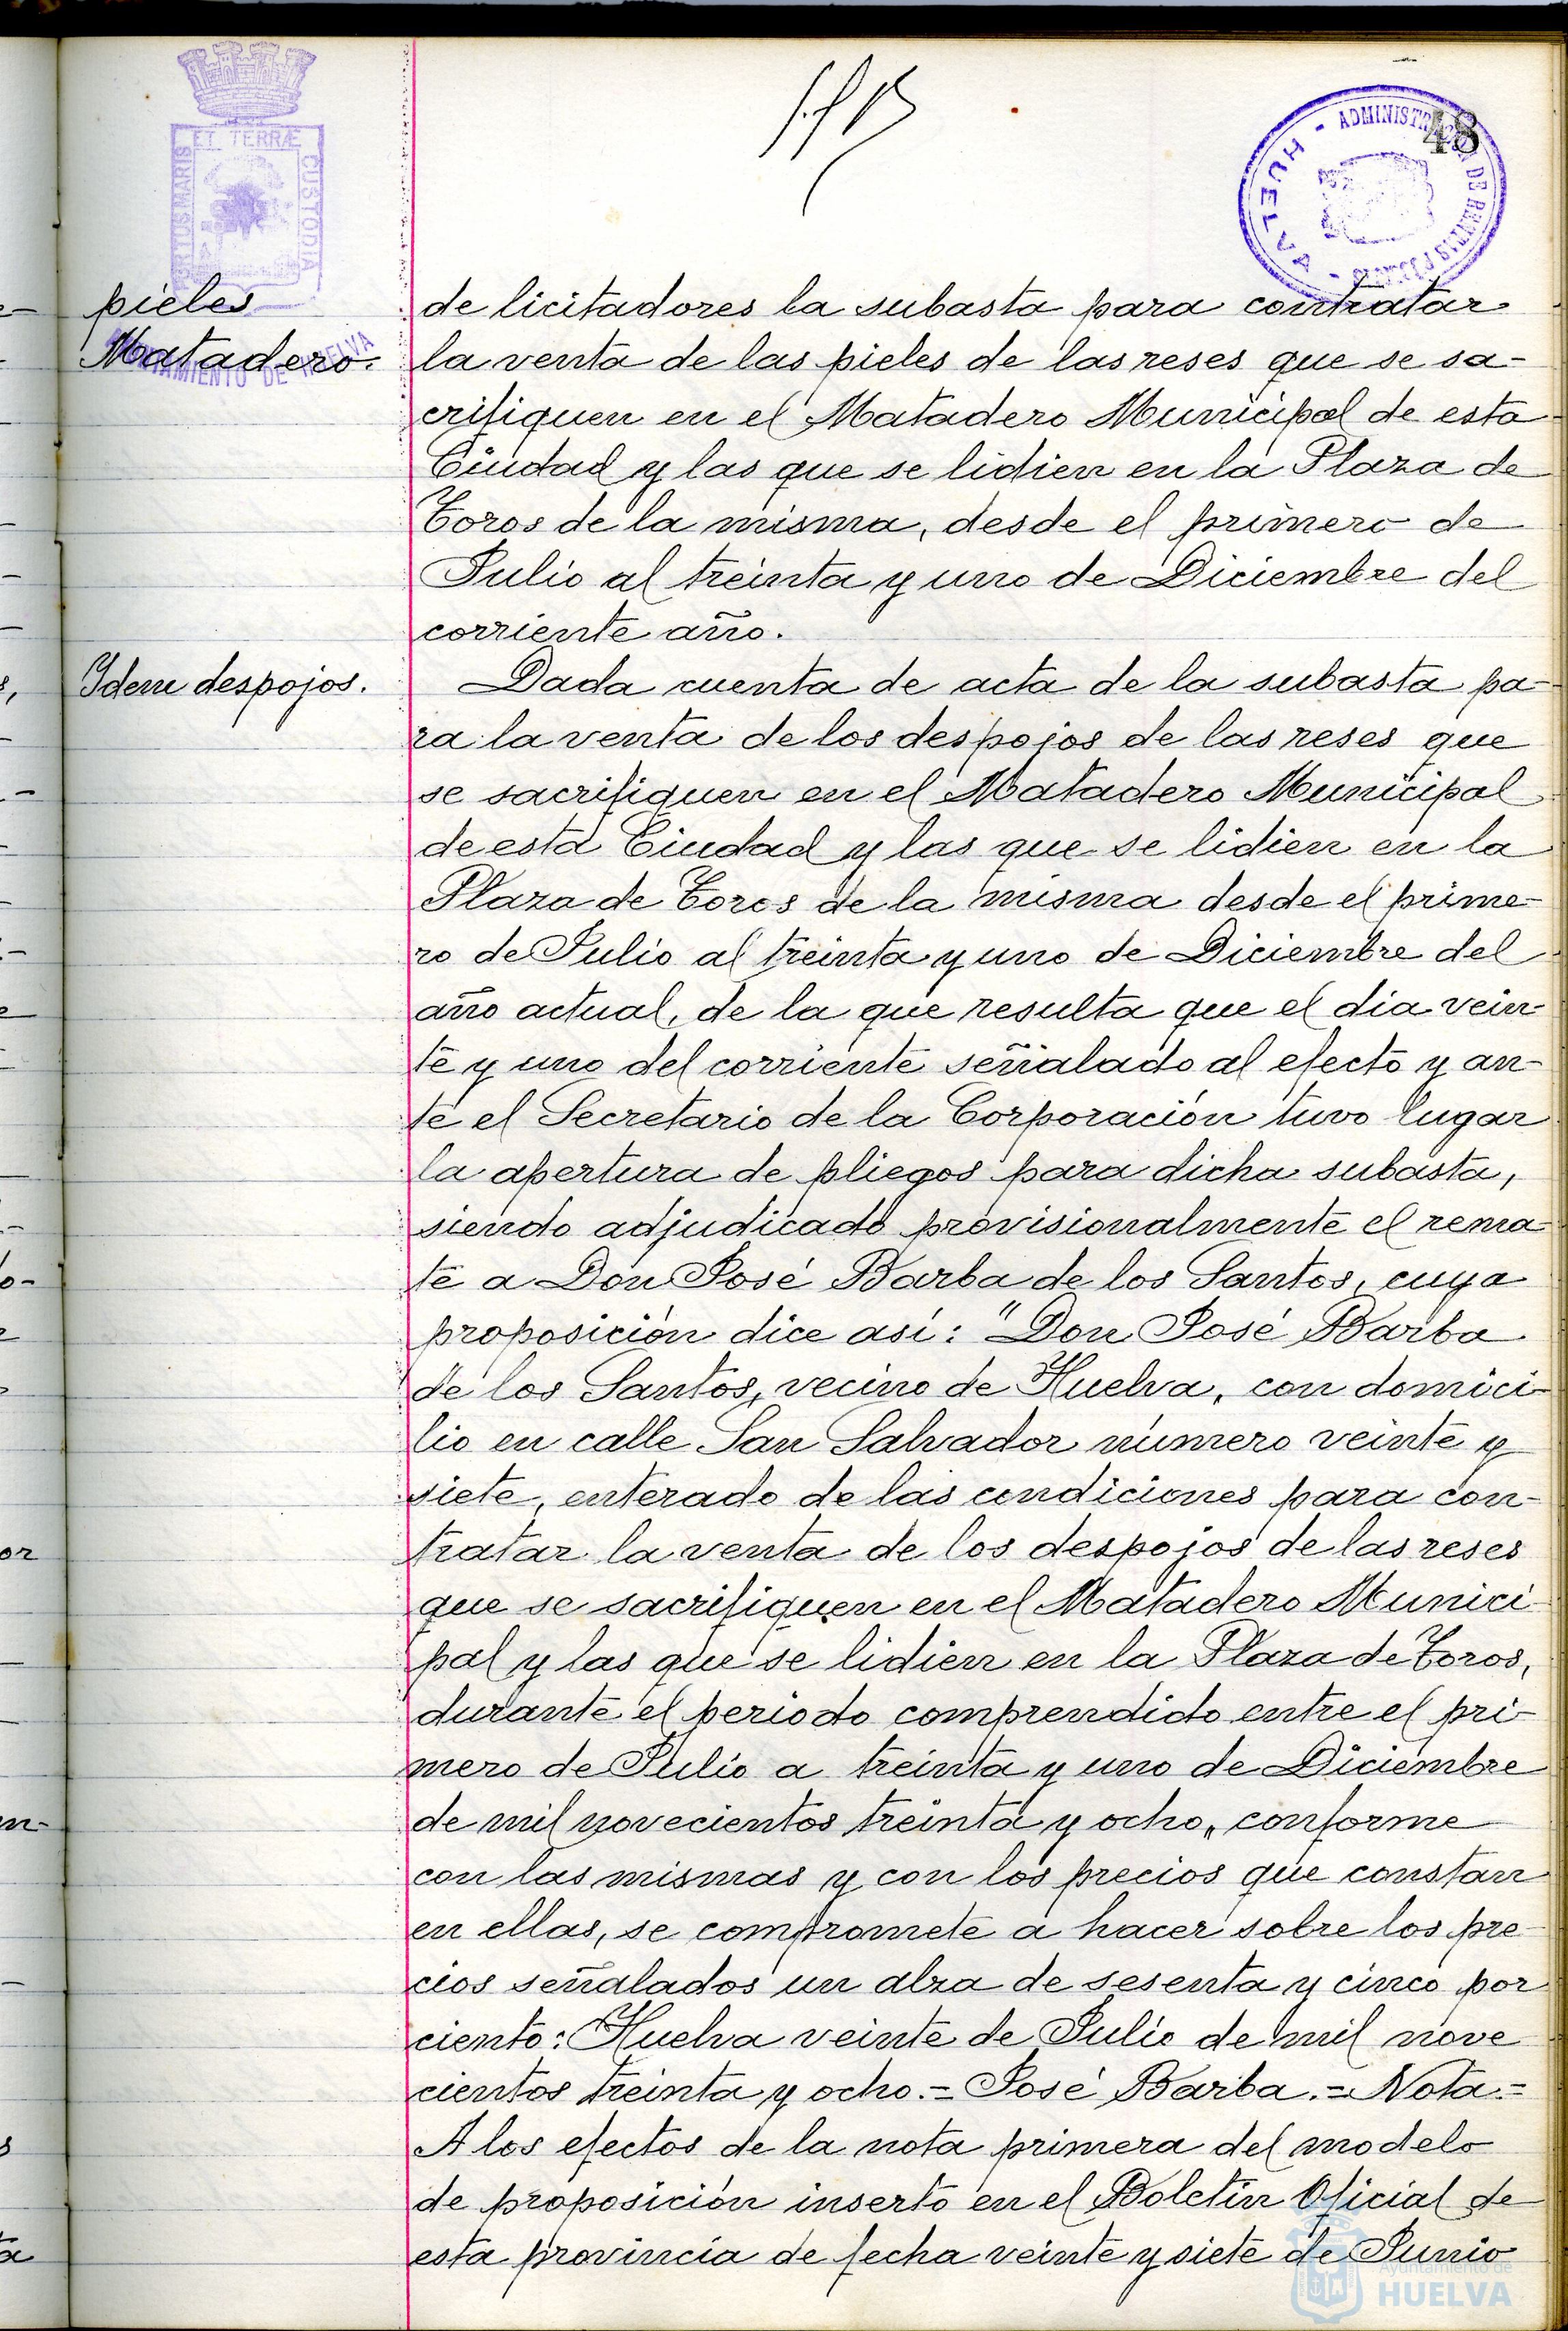 48
ADMINISTRACIÓN DE RENTAS PÚBLICAS - HUELVA -
PORTUS MARIS ET TERRÆ CUSTODIA
AYUNTAMIENTO DE HUELVA
pieles
Matadero.
de licitadores la subasta para contratar
la venta de las pieles de las reses que se sa-
crifiquen en el Matadero Municipal de esta
Ciudad y las que se lidien en la Plaza de
Toros de la misma, desde el primero de
Julio al treinta y uno de Diciembre del
corriente año.
Idem despojos.
Dada cuenta de acta de la subasta pa-
ra la venta de los despojos de las reses que
se sacrifiquen en el Matadero Municipal
de esta Ciudad y las que se lidien en la
Plaza de Toros de la misma desde el prime-
ro de Julio al treinta y uno de Diciembre del
año actual, de la que resulta que el dia vein-
te y uno del corriente señalado al efecto y an-
te el Secretario de la Corporación tuvo lugar
la apertura de pliegos para dicha subasta,
siendo adjudicado provisionalmente el rema-
te a Don José Barba de los Santos, cuya
proposición dice asi: "Don José Barba
de los Santos, vecino de Huelva, con domici-
lio en calle San Salvador número veinte y
siete, enterado de las condiciones para con-
tratar la venta de los despojos de las reses
que se sacrifiquen en el Matadero Munici-
pal y las que se lidien en la Plaza de Toros,
durante el periodo comprendido entre el pri-
mero de Julio a treinta y uno de Diciembre
de mil novecientos treinta y ocho, conforme
con las mismas y con los precios que constan
en ellas, se compromete a hacer sobre los pre-
cios señalados un alza de sesenta y cinco por
ciento: Huelva veinte de Julio de mil nove
cientos treinta y ocho.= José Barba.= Nota.=
A los efectos de la nota primera del modelo
de proposición inserto en el Boletin Oficial de
esta provincia de fecha veinte y siete de Junio
Ayuntamiento de
HUELVA